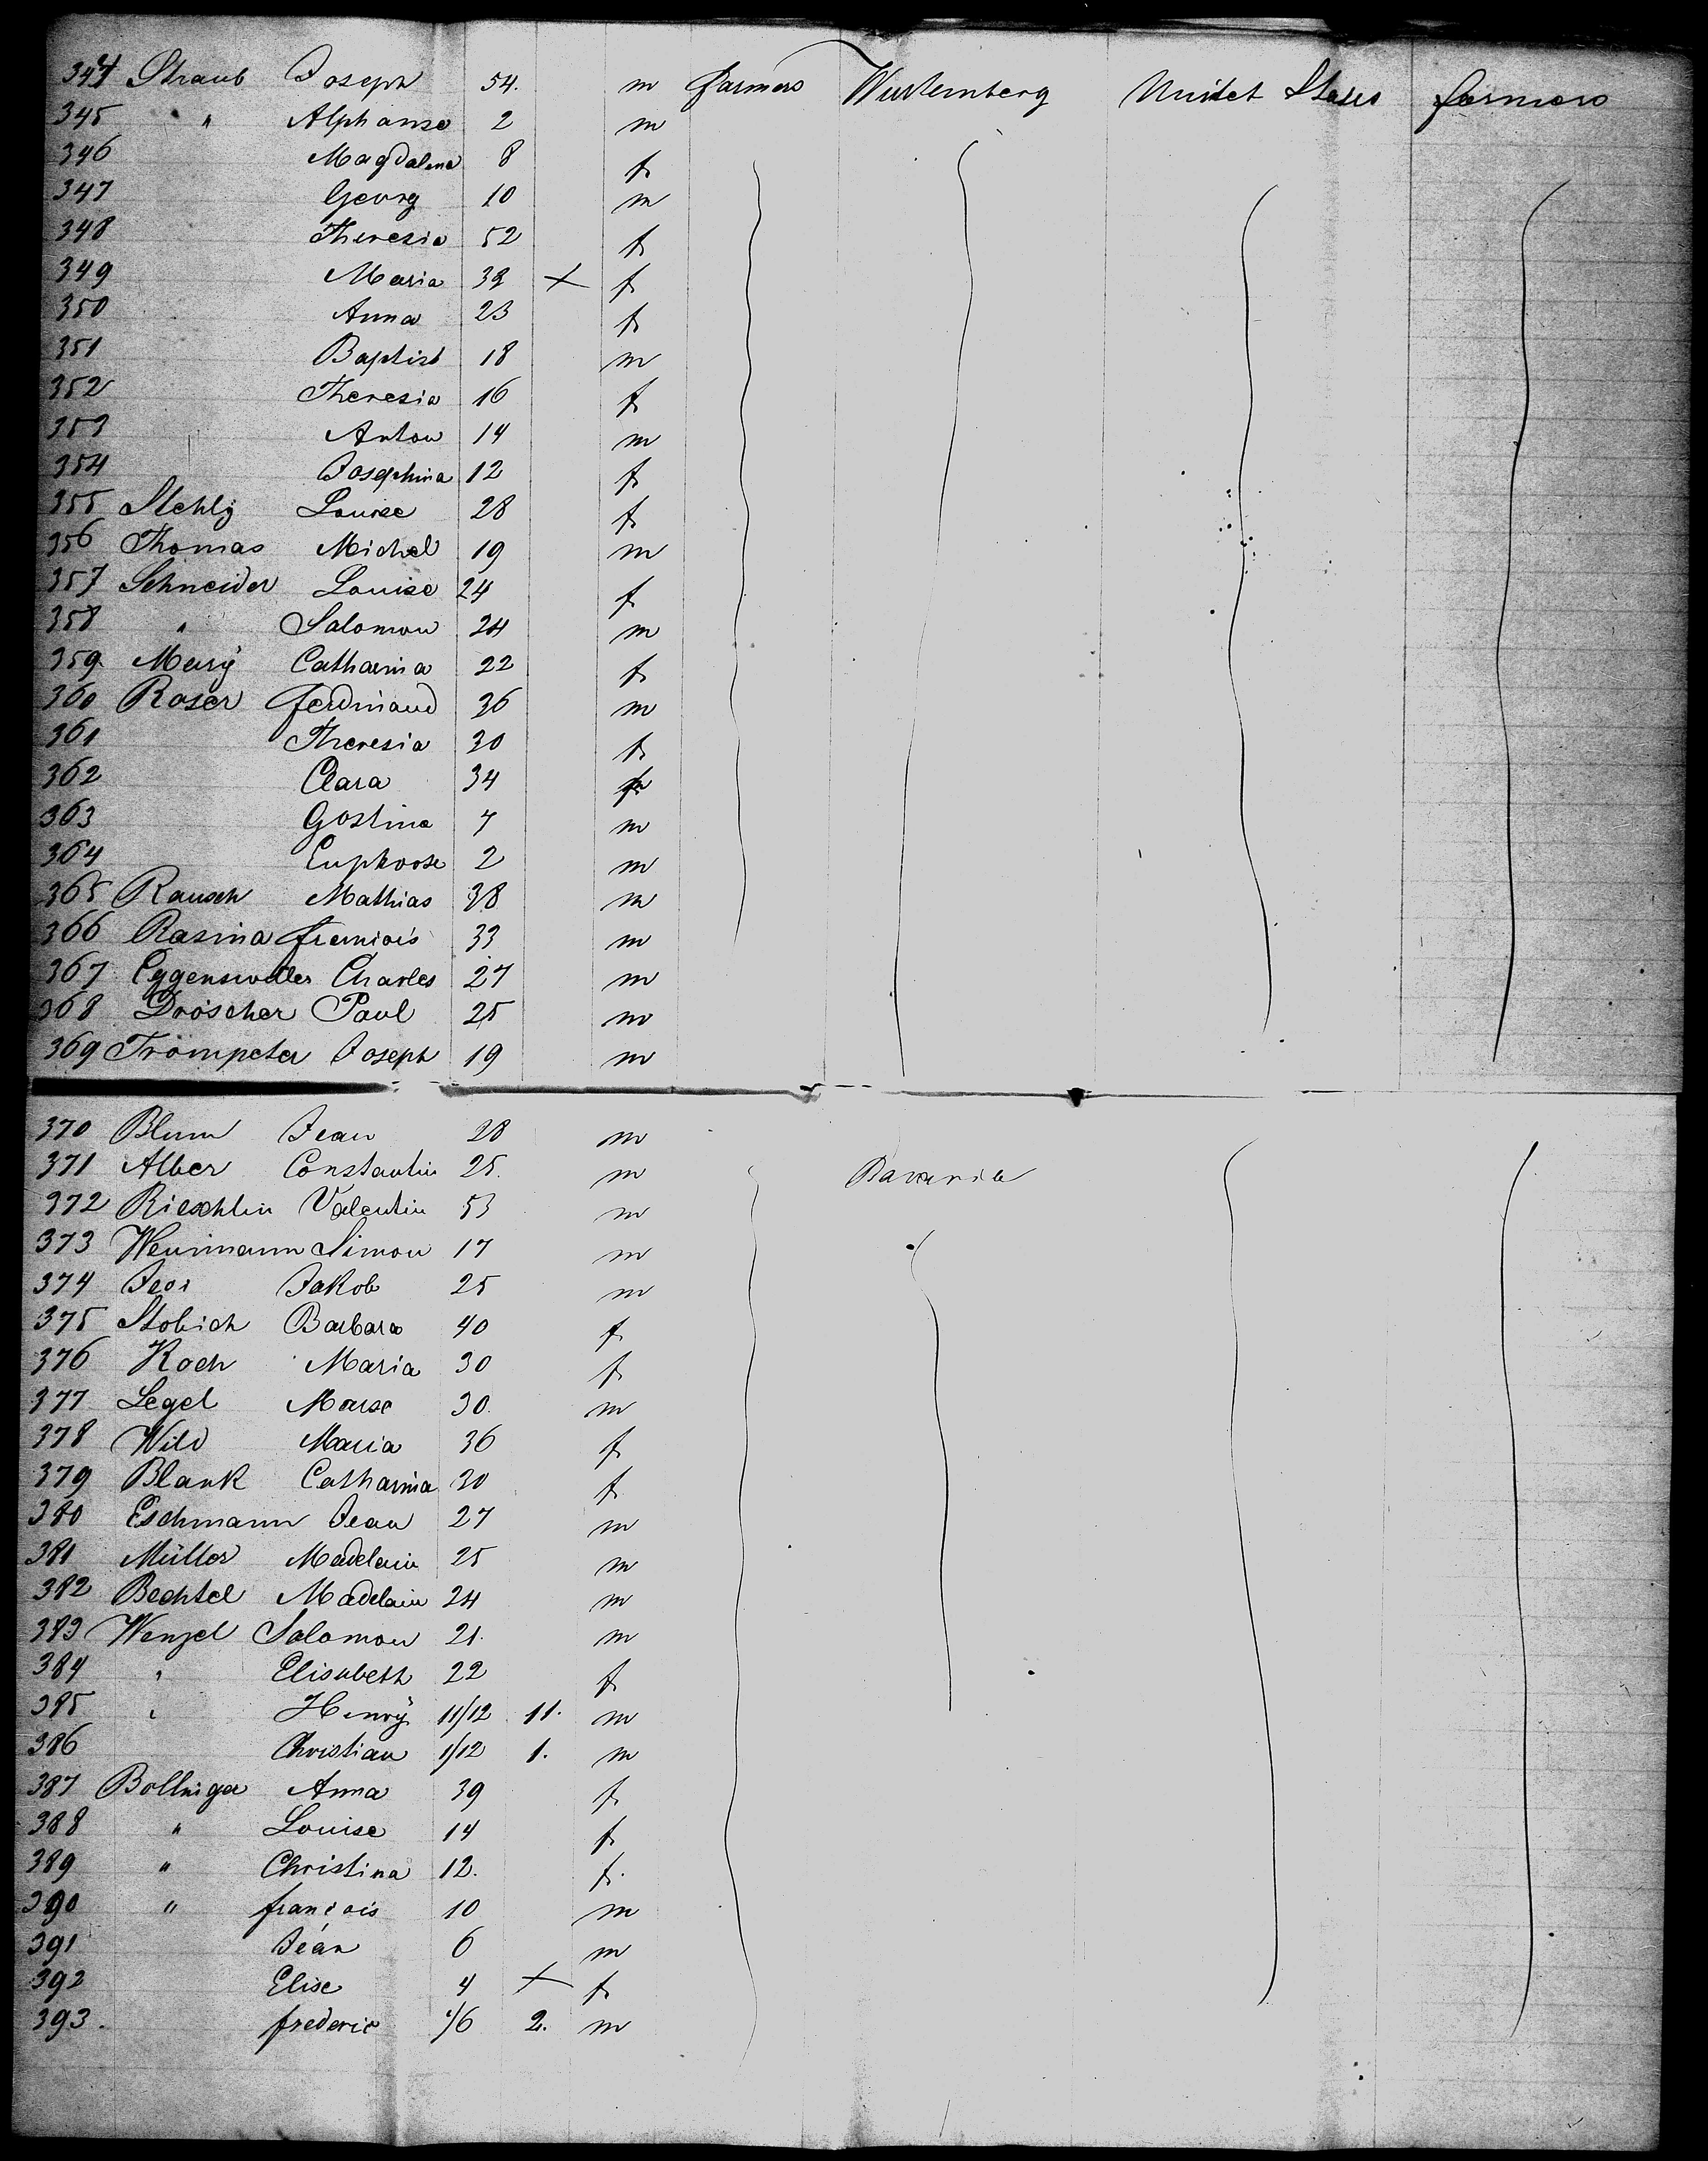 344 Straub Joseph 54. m farmers Wurtemberg Unitet States farmers
345 " Alphonse 2 m
346 Magdalena 8 f
347 Georg 10 m
348 Theresia 52 f
349 Maria 32 × f
350 Anna 23 f
351 Baptist 18 m
352 Theresia 16 f
353 Anton 14 m
354 Josephina 12 f
355 Stehly Louise 28 f
356 Thomas Michel 19 m
357 Schneider Louise 24 f
358 " Salomon 24 m
359 Mary Catharina 22 f
360 Roser ferdinand 36 m
361 Theresia 30 f
362 Clara 34 f
363 Gostine 7 m
364 2 m
365 Rausch Mathias 38 m
366 Rasina 33 m
367 Charles 27 m
368 Dröscher Paul 25 m
369 Trompeter Joseph 19 m
370 Blum Jean 28 m
371 Alber Constantin 25. m Bavaria
372 Valentin 53 m
373 Simon 17 m
374 Jakob 25 m
375 Stobich Barbara 40 f
376 Koch Maria 30 f
377 Legel 30. m
378 Wild Maria 36 f
379 Blank Catharina 20 f
380 Eschmann Jean 27 m
381 Müller Madelain 25 m
382 Bechtel Madelain 24 m
383 Wenzel Salomon 21. m
384 " Elisabeth 22 f
385 " Henry 11/12 11. m
386 Christian 1/12 1. m
387 Bollinger Anna 39 f
388 " Louise 14 f
389 " Christina 12. f.
390 " francois 10 m
391 Jean 6 m
392 Elise 4 × f
393. frederic 1/6 2. m